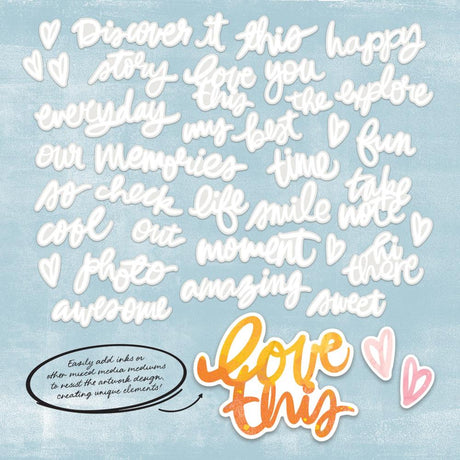 Discover it this happy
story love you
this the explore
everyday my best
our memories time fun
so check life smile take
note
cool out moment hi
there
photo amazing
awesome sweet
Easily add inks or
other mixed media mediums
to resist the artwork design,
creating unique elements!
love
this